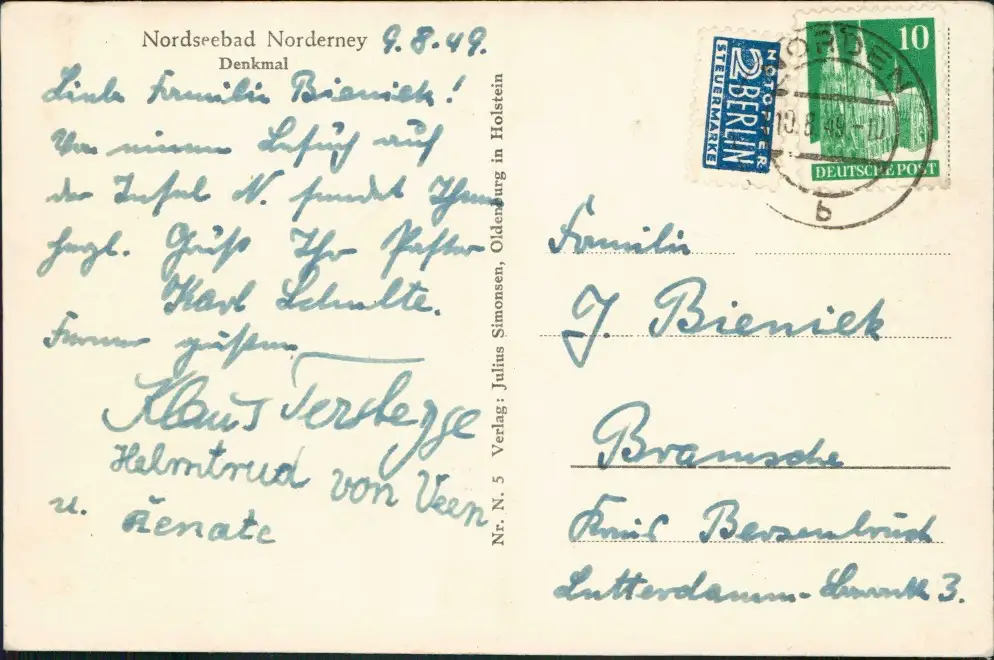 Nordseebad Norderney 9.8.49.
Denkmal
Liebe Familie Bieniek!
Von einem Besuch auf
der Insel N. sendet Ihnen
herzl. Grüße Ihr Pastor
Karl Schulte.
Ferner grüßen
Klaus Terstegge
Helmtrud von Veen
u. Renate
Nr. N. 5 Verlag: Julius Simonsen, Oldenburg in Holstein
NOTOPFER
2 BERLIN
STEUERMARKE
10
DEUTSCHE POST
NORDEN
10.8.49.-17
b
Familie
J. Bieniek
Bramsche
Kreis Bersenbrück
Lutterdamm- 3.